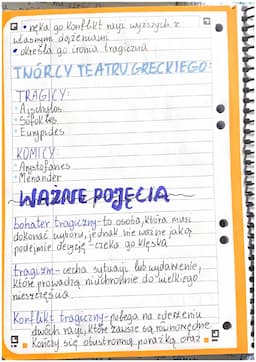 • nęka go konflikt racji wyższych z
własnymi dążeniami
• określa go ironia tragiczna
TWÓRCY TEATRU GRECKIEGO:
TRAGICY:
• Ajschylos
• Sofokles
• Eurypides
KOMICY:
• Arystofanes
• Menander
WAŻNE POJĘCIA
bohater tragiczny - to osoba, która musi
dokonać wyboru, jednak nie ważne jaką
podejmie decyzję - czeka go klęska.
tragizm - cecha sytuacji lub wydarzenie,
które prowadzą nieuchronnie do wielkiego
nieszczęścia.
Konflikt tragiczny - polega na zderzeniu
dwóch racji, które zawsze są równorzędne.
Kończy się obustronną porażką oraz